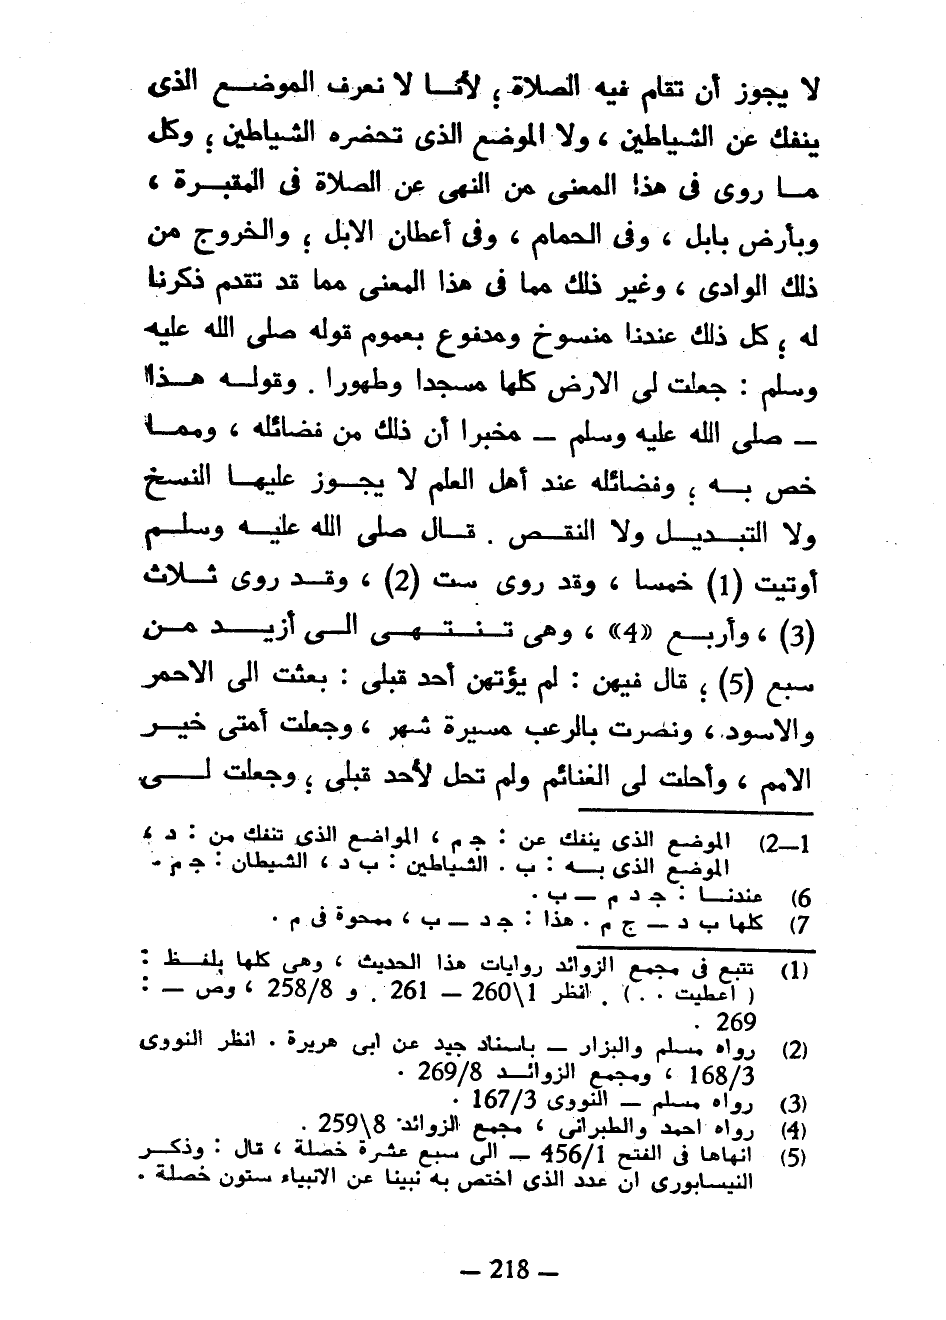 لا يجوز أن تقام فيه الصلاة ؛ لأنـا لا نعرف الموضـــع الذى
ينفك عن الشياطين ، ولا الموضع الذى تحضره الشياطين ؛ وكل
مـــا روى فى هذا المعنى من النهى عن الصلاة فى المقبـــرة ،
وبأرض بابل ، وفى الحمام ، وفى أعطان الابل ؛ والخروج من
ذلك الوادى ، وغير ذلك مما فى هذا المعنى مما قد تقدم ذكرنا
له ؛ كل ذلك عندنا منسوخ ومدفوع بعموم قوله صلى الله عليه
وسلم : جعلت لى الارض كلها مسجدا وطهورا . وقولــه هــذا
ــ صلى الله عليه وسلم ــ مخبرا أن ذلك من فضائله ، وممــا
خص بـــه ؛ وفضائله عند أهل العلم لا يجــوز عليهــا النسخ
ولا التبــديــل ولا النقــص . قــال صلى الله عليــه وسلــم
أوتيت (1) خمسا ، وقد روى ست (2) ، وقــد روى ثــلاث
(3) ، وأربــع «4» ، وهى تــنــتــهــى الــى أزيــــد مــن
سبع (5) ؛ قال فيهن : لم يؤتهن أحد قبلى : بعثت الى الاحمر
والاسود ، ونصرت بالرعب مسيرة شهر ، وجعلت أمتى خيــر
الامم ، وأحلت لى الغنائم ولم تحل لأحد قبلى ؛ وجعلت لـــى
1—2) الموضع الذى ينفك عن : ج م ، المواضع الذى تنفك من : د ،
الموضع الذى بــه : ب . الشياطين : ب د ، الشيطان : ج م .
6) عندنــا : ج د م ــ ب .
7) كلها ب د ــ ج م . هذا : ج د ــ ب ، ممحوة فى م .
(1) تتبع فى مجمع الزوائد روايات هذا الحديث ، وهى كلها بلفــظ :
( أعطيت . . ) . انظر 1\260 — 261 . و 258/8 ، وص — :
269 .
(2) رواه مسلم والبزار ــ باسناد جيد عن ابى هريرة . انظر النووى
168/3 ، ومجمع الزوائــد 269/8 .
(3) رواه مسلم ــ النووى 167/3 .
(4) رواه احمد والطبرانى ، مجمع الزوائد 8\259 .
(5) انهاها فى الفتح 456/1 ــ الى سبع عشرة خصلة ، قال : وذكــر
النيسابورى ان عدد الذى اختص به نبينا عن الانبياء ستون خصلة .
— 218 —